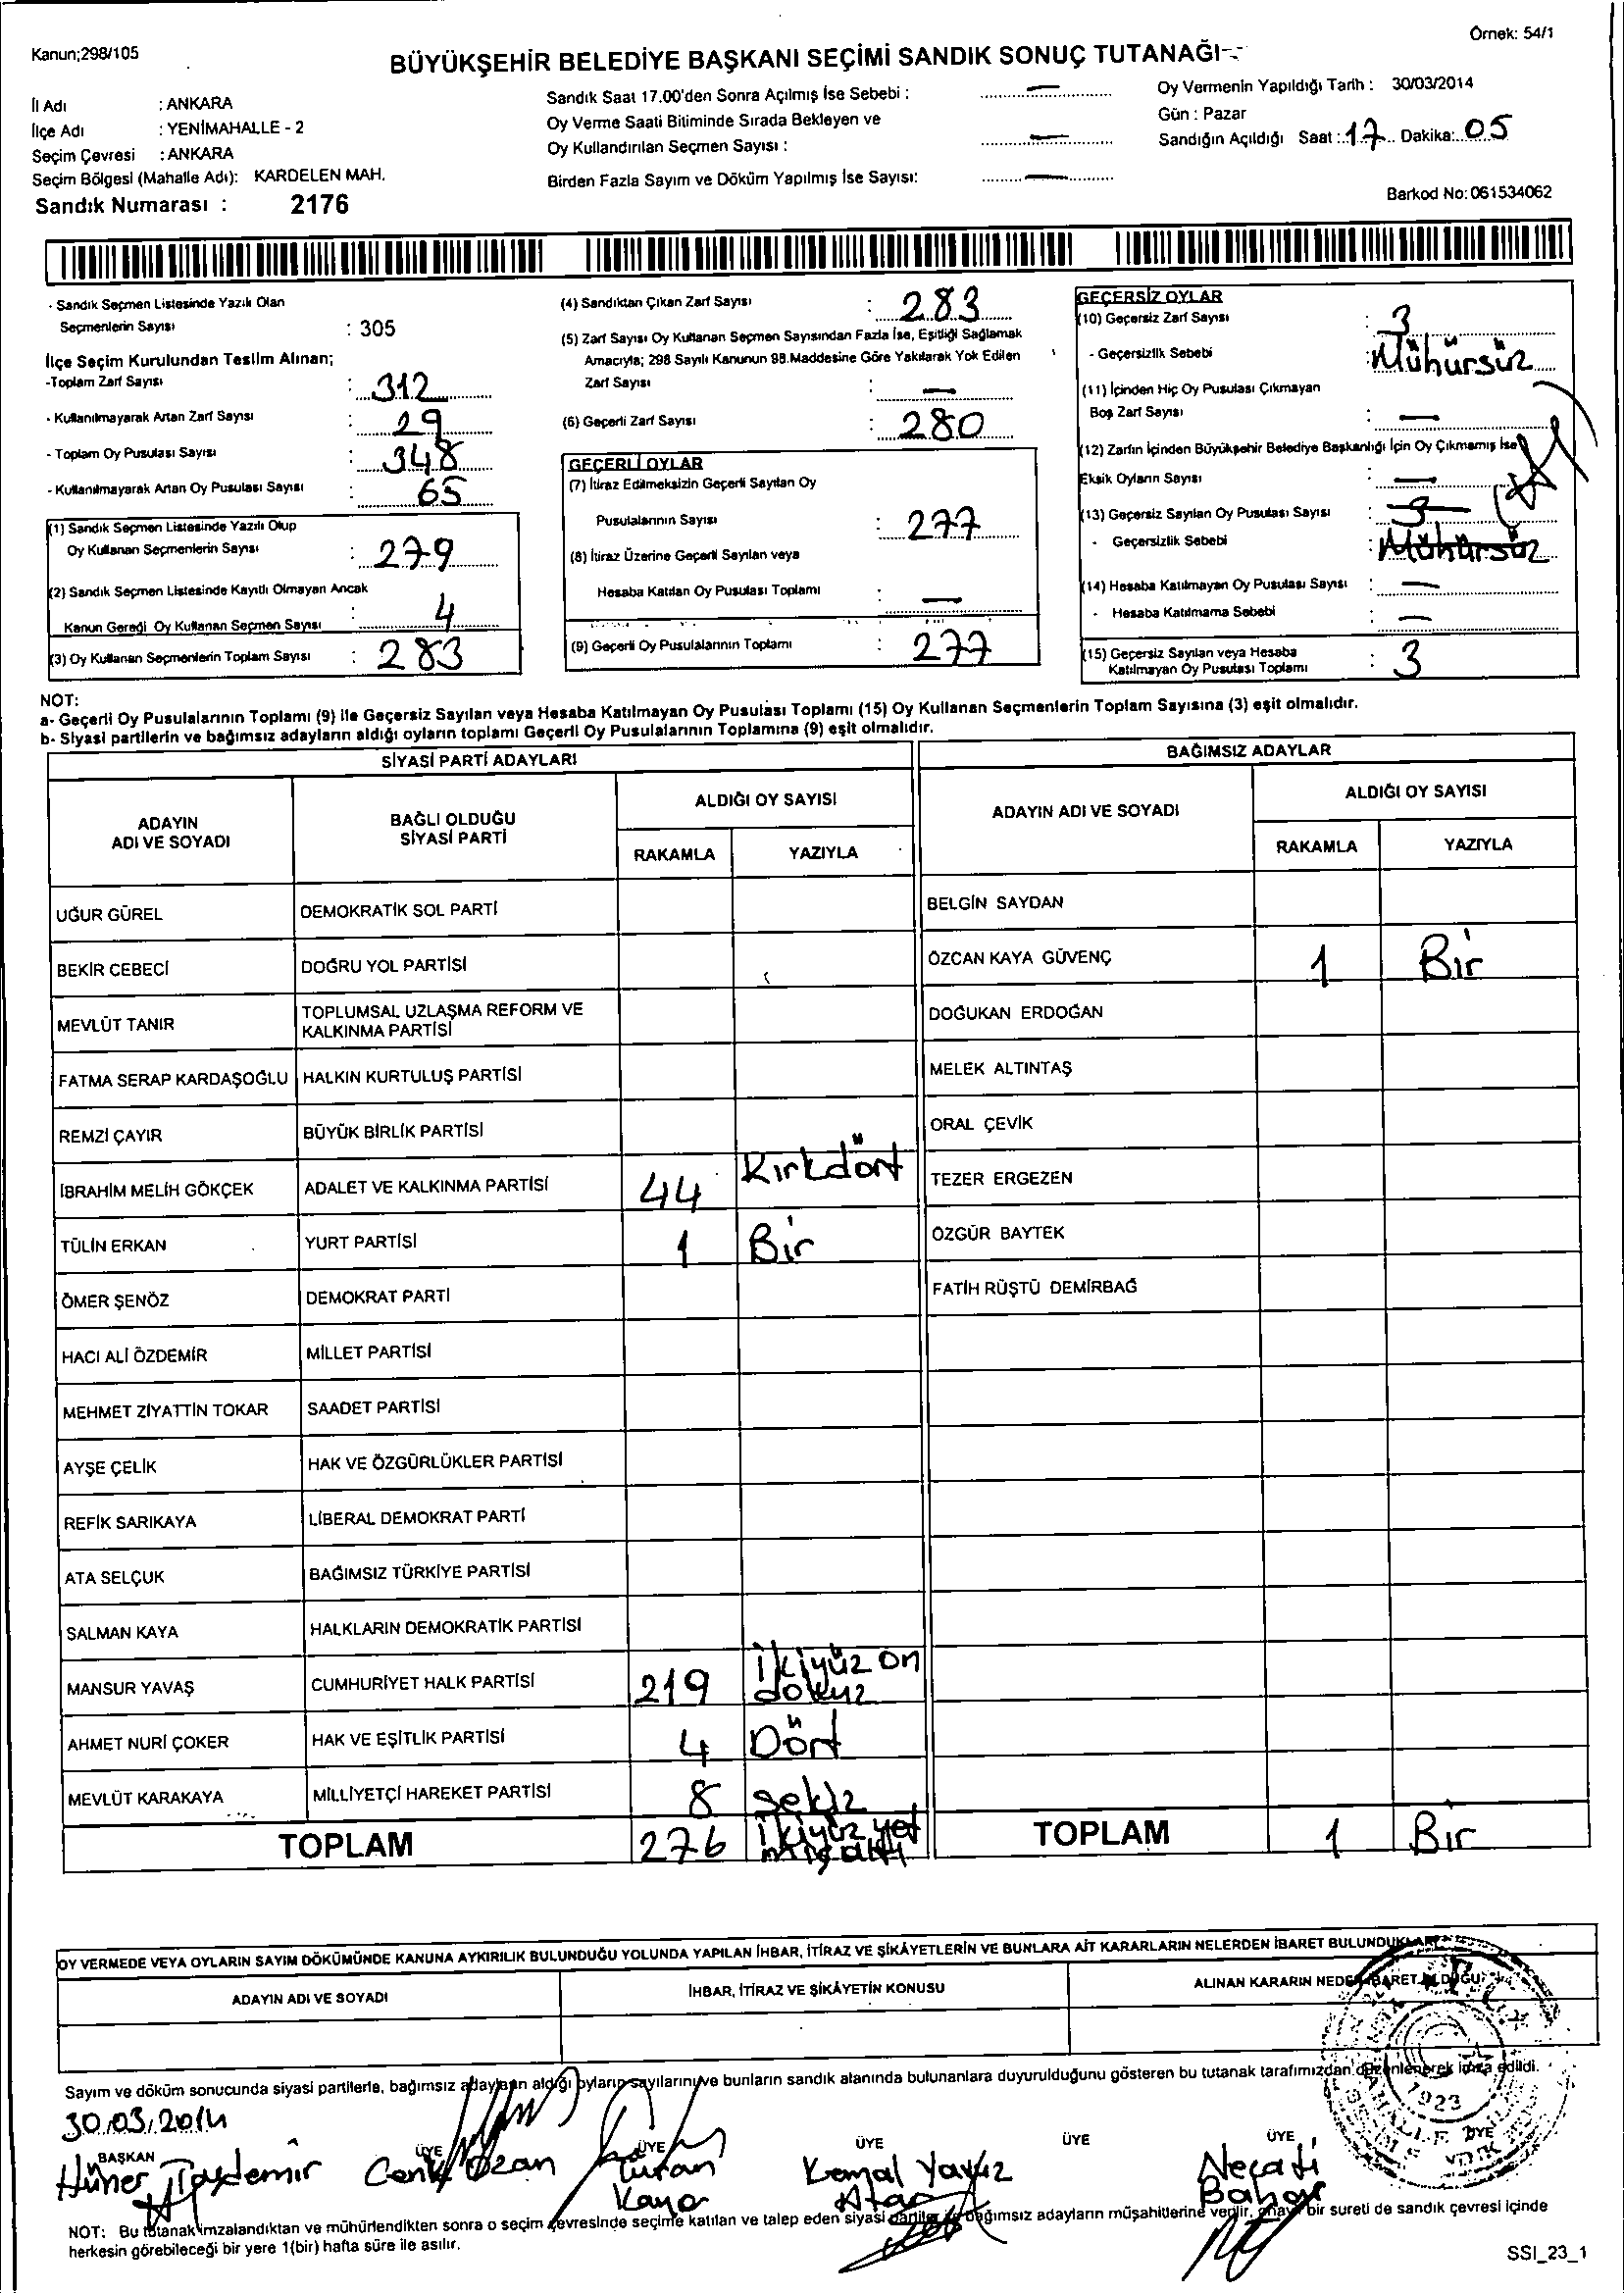 Kanun;298/105
Örnek: 54/1
BÜYÜKŞEHİR BELEDİYE BAŞKANI SEÇİMİ SANDIK SONUÇ TUTANAĞI
İl Adı : ANKARA
İlçe Adı : YENİMAHALLE - 2
Seçim Çevresi : ANKARA
Seçim Bölgesi (Mahalle Adı): KARDELEN MAH.
Sandık Numarası : 2176
Sandık Saat 17.00'den Sonra Açılmış İse Sebebi : —
Oy Verme Saati Bitiminde Sırada Bekleyen ve
Oy Kullandırılan Seçmen Sayısı : —
Birden Fazla Sayım ve Döküm Yapılmış İse Sayısı: —
Oy Vermenin Yapıldığı Tarih : 30/03/2014
Gün : Pazar
Sandığın Açıldığı Saat : 17 Dakika: 05
Barkod No: 061534062
- Sandık Seçmen Listesinde Yazılı Olan
Seçmenlerin Sayısı : 305
İlçe Seçim Kurulundan Teslim Alınan;
-Toplam Zarf Sayısı : 312
- Kullanılmayarak Artan Zarf Sayısı : 29
- Toplam Oy Pusulası Sayısı : 348
- Kullanılmayarak Artan Oy Pusulası Sayısı : 65
(1) Sandık Seçmen Listesinde Yazılı Olup
Oy Kullanan Seçmenlerin Sayısı : 279
(2) Sandık Seçmen Listesinde Kayıtlı Olmayan Ancak
Kanun Gereği Oy Kullanan Seçmen Sayısı : 4
(3) Oy Kullanan Seçmenlerin Toplam Sayısı : 283
(4) Sandıktan Çıkan Zarf Sayısı : 283
(5) Zarf Sayısı Oy Kullanan Seçmen Sayısından Fazla İse, Eşitliği Sağlamak
Amacıyla; 298 Sayılı Kanunun 98.Maddesine Göre Yakılarak Yok Edilen
Zarf Sayısı : —
(6) Geçerli Zarf Sayısı : 280
GEÇERLİ OYLAR
(7) İtiraz Edilmeksizin Geçerli Sayılan Oy
Pusulalarının Sayısı : 277
(8) İtiraz Üzerine Geçerli Sayılan veya
Hesaba Katılan Oy Pusulası Toplamı : —
(9) Geçerli Oy Pusulalarının Toplamı : 277
GEÇERSİZ OYLAR
(10) Geçersiz Zarf Sayısı : 3
- Geçersizlik Sebebi : Mühürsüz
(11) İçinden Hiç Oy Pusulası Çıkmayan
Boş Zarf Sayısı : —
(12) Zarfın İçinden Büyükşehir Belediye Başkanlığı İçin Oy Çıkmamış İse
Eksik Oyların Sayısı : —
(13) Geçersiz Sayılan Oy Pusulası Sayısı : 3
- Geçersizlik Sebebi : Mühürsüz
(14) Hesaba Katılmayan Oy Pusulası Sayısı : —
- Hesaba Katılmama Sebebi : —
(15) Geçersiz Sayılan veya Hesaba
Katılmayan Oy Pusulası Toplamı : 3
NOT:
a- Geçerli Oy Pusulalarının Toplamı (9) ile Geçersiz Sayılan veya Hesaba Katılmayan Oy Pusulası Toplamı (15) Oy Kullanan Seçmenlerin Toplam Sayısına (3) eşit olmalıdır.
b- Siyasi partilerin ve bağımsız adayların aldığı oyların toplamı Geçerli Oy Pusulalarının Toplamına (9) eşit olmalıdır.
SİYASİ PARTİ ADAYLARI
ADAYIN
ADI VE SOYADI
BAĞLI OLDUĞU
SİYASİ PARTİ
ALDIĞI OY SAYISI
RAKAMLA YAZIYLA
UĞUR GÜREL DEMOKRATİK SOL PARTİ
BEKİR CEBECİ DOĞRU YOL PARTİSİ
MEVLÜT TANIR TOPLUMSAL UZLAŞMA REFORM VE
KALKINMA PARTİSİ
FATMA SERAP KARDAŞOĞLU HALKIN KURTULUŞ PARTİSİ
REMZİ ÇAYIR BÜYÜK BİRLİK PARTİSİ
İBRAHİM MELİH GÖKÇEK ADALET VE KALKINMA PARTİSİ 44 Kırkdört
TÜLİN ERKAN YURT PARTİSİ 1 Bir
ÖMER ŞENÖZ DEMOKRAT PARTİ
HACI ALİ ÖZDEMİR MİLLET PARTİSİ
MEHMET ZİYATTİN TOKAR SAADET PARTİSİ
AYŞE ÇELİK HAK VE ÖZGÜRLÜKLER PARTİSİ
REFİK SARIKAYA LİBERAL DEMOKRAT PARTİ
ATA SELÇUK BAĞIMSIZ TÜRKİYE PARTİSİ
SALMAN KAYA HALKLARIN DEMOKRATİK PARTİSİ
MANSUR YAVAŞ CUMHURİYET HALK PARTİSİ 219 İkiyüz on
dokuz
AHMET NURİ ÇOKER HAK VE EŞİTLİK PARTİSİ 4 Dört
MEVLÜT KARAKAYA MİLLİYETÇİ HAREKET PARTİSİ 8 Sekiz
TOPLAM 276 İkiyüz yet
mişaltı
BAĞIMSIZ ADAYLAR
ADAYIN ADI VE SOYADI
ALDIĞI OY SAYISI
RAKAMLA YAZIYLA
BELGİN SAYDAN
ÖZCAN KAYA GÜVENÇ 1 Bir
DOĞUKAN ERDOĞAN
MELEK ALTINTAŞ
ORAL ÇEVİK
TEZER ERGEZEN
ÖZGÜR BAYTEK
FATİH RÜŞTÜ DEMİRBAĞ
TOPLAM 1 Bir
OY VERMEDE VEYA OYLARIN SAYIM DÖKÜMÜNDE KANUNA AYKIRILIK BULUNDUĞU YOLUNDA YAPILAN İHBAR, İTİRAZ VE ŞİKÂYETLERİN VE BUNLARA AİT KARARLARIN NELERDEN İBARET BULUNDUKLARI
ADAYIN ADI VE SOYADI
İHBAR, İTİRAZ VE ŞİKÂYETİN KONUSU
ALINAN KARARIN NEDEN İBARET OLDUĞU
Sayım ve döküm sonucunda siyasi partilerle, bağımsız adayların aldığı oyların sayılarını ve bunların sandık alanında bulunanlara duyurulduğunu gösteren bu tutanak tarafımızdan düzenlenerek imza edildi.
30.03.2014
1923
BAŞKAN ÜYE ÜYE ÜYE ÜYE ÜYE
Hüner Taşdemir Cenk Ozan Turan Kemal Yavuz Necati
Kaya Atar Bahar
NOT: Bu tutanak imzalandıktan ve mühürlendikten sonra o seçim çevresinde seçime katılan ve talep eden siyasi partiler ve bağımsız adayların müşahitlerine verilir, onaylı bir sureti de sandık çevresi içinde
herkesin görebileceği bir yere 1(bir) hafta süre ile asılır.
SSI_23_1